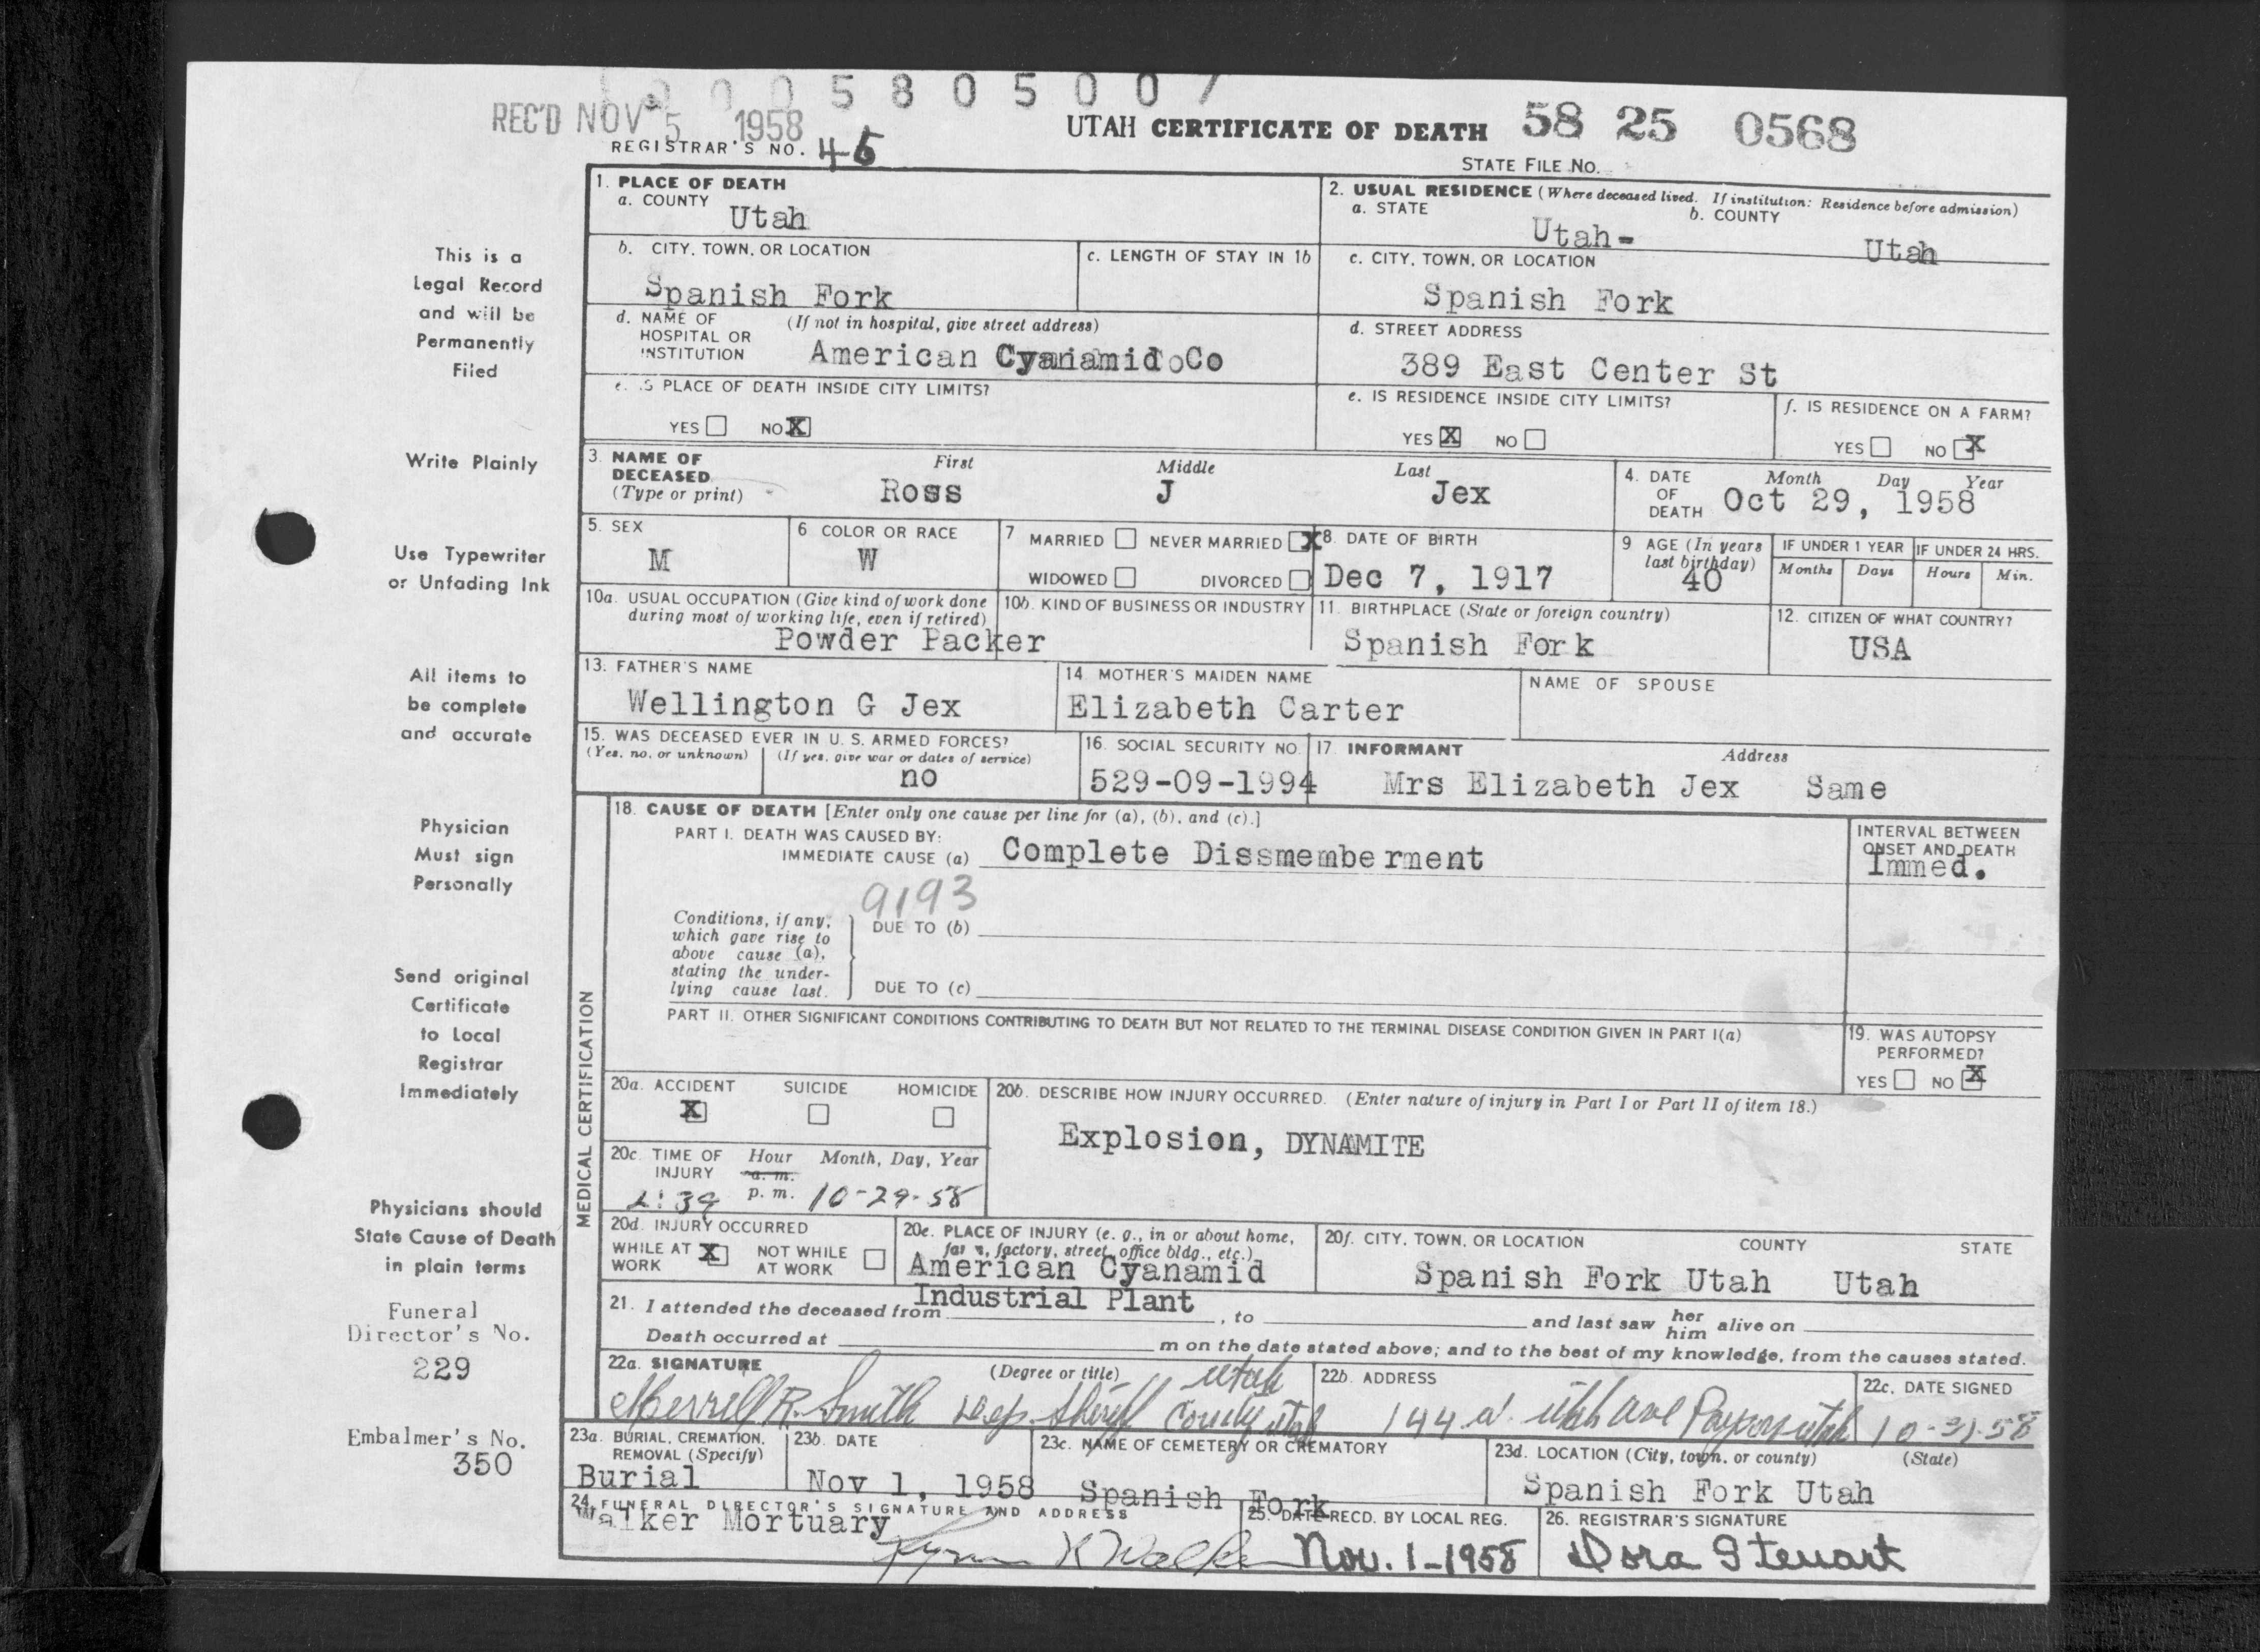 0 0 0 5 8 0 5 0 0 7
REC'D NOV 5 1958
UTAH CERTIFICATE OF DEATH 58 25 0568
REGISTRAR'S NO. 45
STATE FILE NO.
1. PLACE OF DEATH
a. COUNTY
Utah
2. USUAL RESIDENCE (Where deceased lived. If institution: Residence before admission)
a. STATE b. COUNTY
Utah- Utah
b. CITY, TOWN, OR LOCATION
Spanish Fork
c. LENGTH OF STAY IN 1b
c. CITY, TOWN, OR LOCATION
Spanish Fork
d. NAME OF (If not in hospital, give street address)
HOSPITAL OR
INSTITUTION American Cyanamid Co
d. STREET ADDRESS
389 East Center St
e. IS PLACE OF DEATH INSIDE CITY LIMITS?
YES NO X
e. IS RESIDENCE INSIDE CITY LIMITS?
YES X NO
f. IS RESIDENCE ON A FARM?
YES NO X
3. NAME OF First Middle Last
DECEASED
(Type or print) Ross J Jex
4. DATE Month Day Year
OF
DEATH Oct 29, 1958
5. SEX
M
6 COLOR OR RACE
W
7 MARRIED NEVER MARRIED X
WIDOWED DIVORCED
8. DATE OF BIRTH
Dec 7, 1917
9 AGE (In years
last birthday)
40
IF UNDER 1 YEAR IF UNDER 24 HRS.
Months Days Hours Min.
10a. USUAL OCCUPATION (Give kind of work done
during most of working life, even if retired)
Powder Packer
10b. KIND OF BUSINESS OR INDUSTRY
11. BIRTHPLACE (State or foreign country)
Spanish Fork
12. CITIZEN OF WHAT COUNTRY?
USA
13. FATHER'S NAME
Wellington G Jex
14. MOTHER'S MAIDEN NAME
Elizabeth Carter
NAME OF SPOUSE
15. WAS DECEASED EVER IN U. S. ARMED FORCES?
(Yes, no, or unknown) (If yes, give war or dates of service)
no
16. SOCIAL SECURITY NO.
529-09-1994
17. INFORMANT Address
Mrs Elizabeth Jex Same
MEDICAL CERTIFICATION
18. CAUSE OF DEATH [Enter only one cause per line for (a), (b), and (c).]
PART I. DEATH WAS CAUSED BY:
IMMEDIATE CAUSE (a) Complete Dissmemberment
INTERVAL BETWEEN
ONSET AND DEATH
Immed.
9193
Conditions, if any,
which gave rise to
above cause (a),
stating the under-
lying cause last.
DUE TO (b)
DUE TO (c)
PART II. OTHER SIGNIFICANT CONDITIONS CONTRIBUTING TO DEATH BUT NOT RELATED TO THE TERMINAL DISEASE CONDITION GIVEN IN PART I(a)
19. WAS AUTOPSY
PERFORMED?
YES NO X
20a. ACCIDENT SUICIDE HOMICIDE
X
20b. DESCRIBE HOW INJURY OCCURRED. (Enter nature of injury in Part I or Part II of item 18.)
Explosion, DYNAMITE
20c. TIME OF Hour Month, Day, Year
INJURY a. m.
p. m. 10-29-58
20d. INJURY OCCURRED
WHILE AT X NOT WHILE
WORK AT WORK
20e. PLACE OF INJURY (e. g., in or about home,
farm, factory, street, office bldg., etc.)
American Cyanamid
Industrial Plant
20f. CITY, TOWN, OR LOCATION COUNTY STATE
Spanish Fork Utah Utah
21. I attended the deceased from , to and last saw her him alive on
Death occurred at m on the date stated above; and to the best of my knowledge, from the causes stated.
22a. SIGNATURE (Degree or title)
Merrell R. Smith Dep. Sheriff Utah County Utah
22b. ADDRESS
Utah Ave Payson Utah
22c. DATE SIGNED
10-31-58
23a. BURIAL, CREMATION,
REMOVAL (Specify)
Burial
23b. DATE
Nov 1, 1958
23c. NAME OF CEMETERY OR CREMATORY
Spanish Fork
23d. LOCATION (City, town, or county) (State)
Spanish Fork Utah
24. FUNERAL DIRECTOR'S SIGNATURE AND ADDRESS
Walker Mortuary
K Walker
25. DATE RECD. BY LOCAL REG.
Nov. 1-1958
26. REGISTRAR'S SIGNATURE
Dora Stewart
This is a
Legal Record
and will be
Permanently
Filed
Write Plainly
Use Typewriter
or Unfading Ink
All items to
be complete
and accurate
Physician
Must sign
Personally
Send original
Certificate
to Local
Registrar
Immediately
Physicians should
State Cause of Death
in plain terms
Funeral
Director's No.
229
Embalmer's No.
350